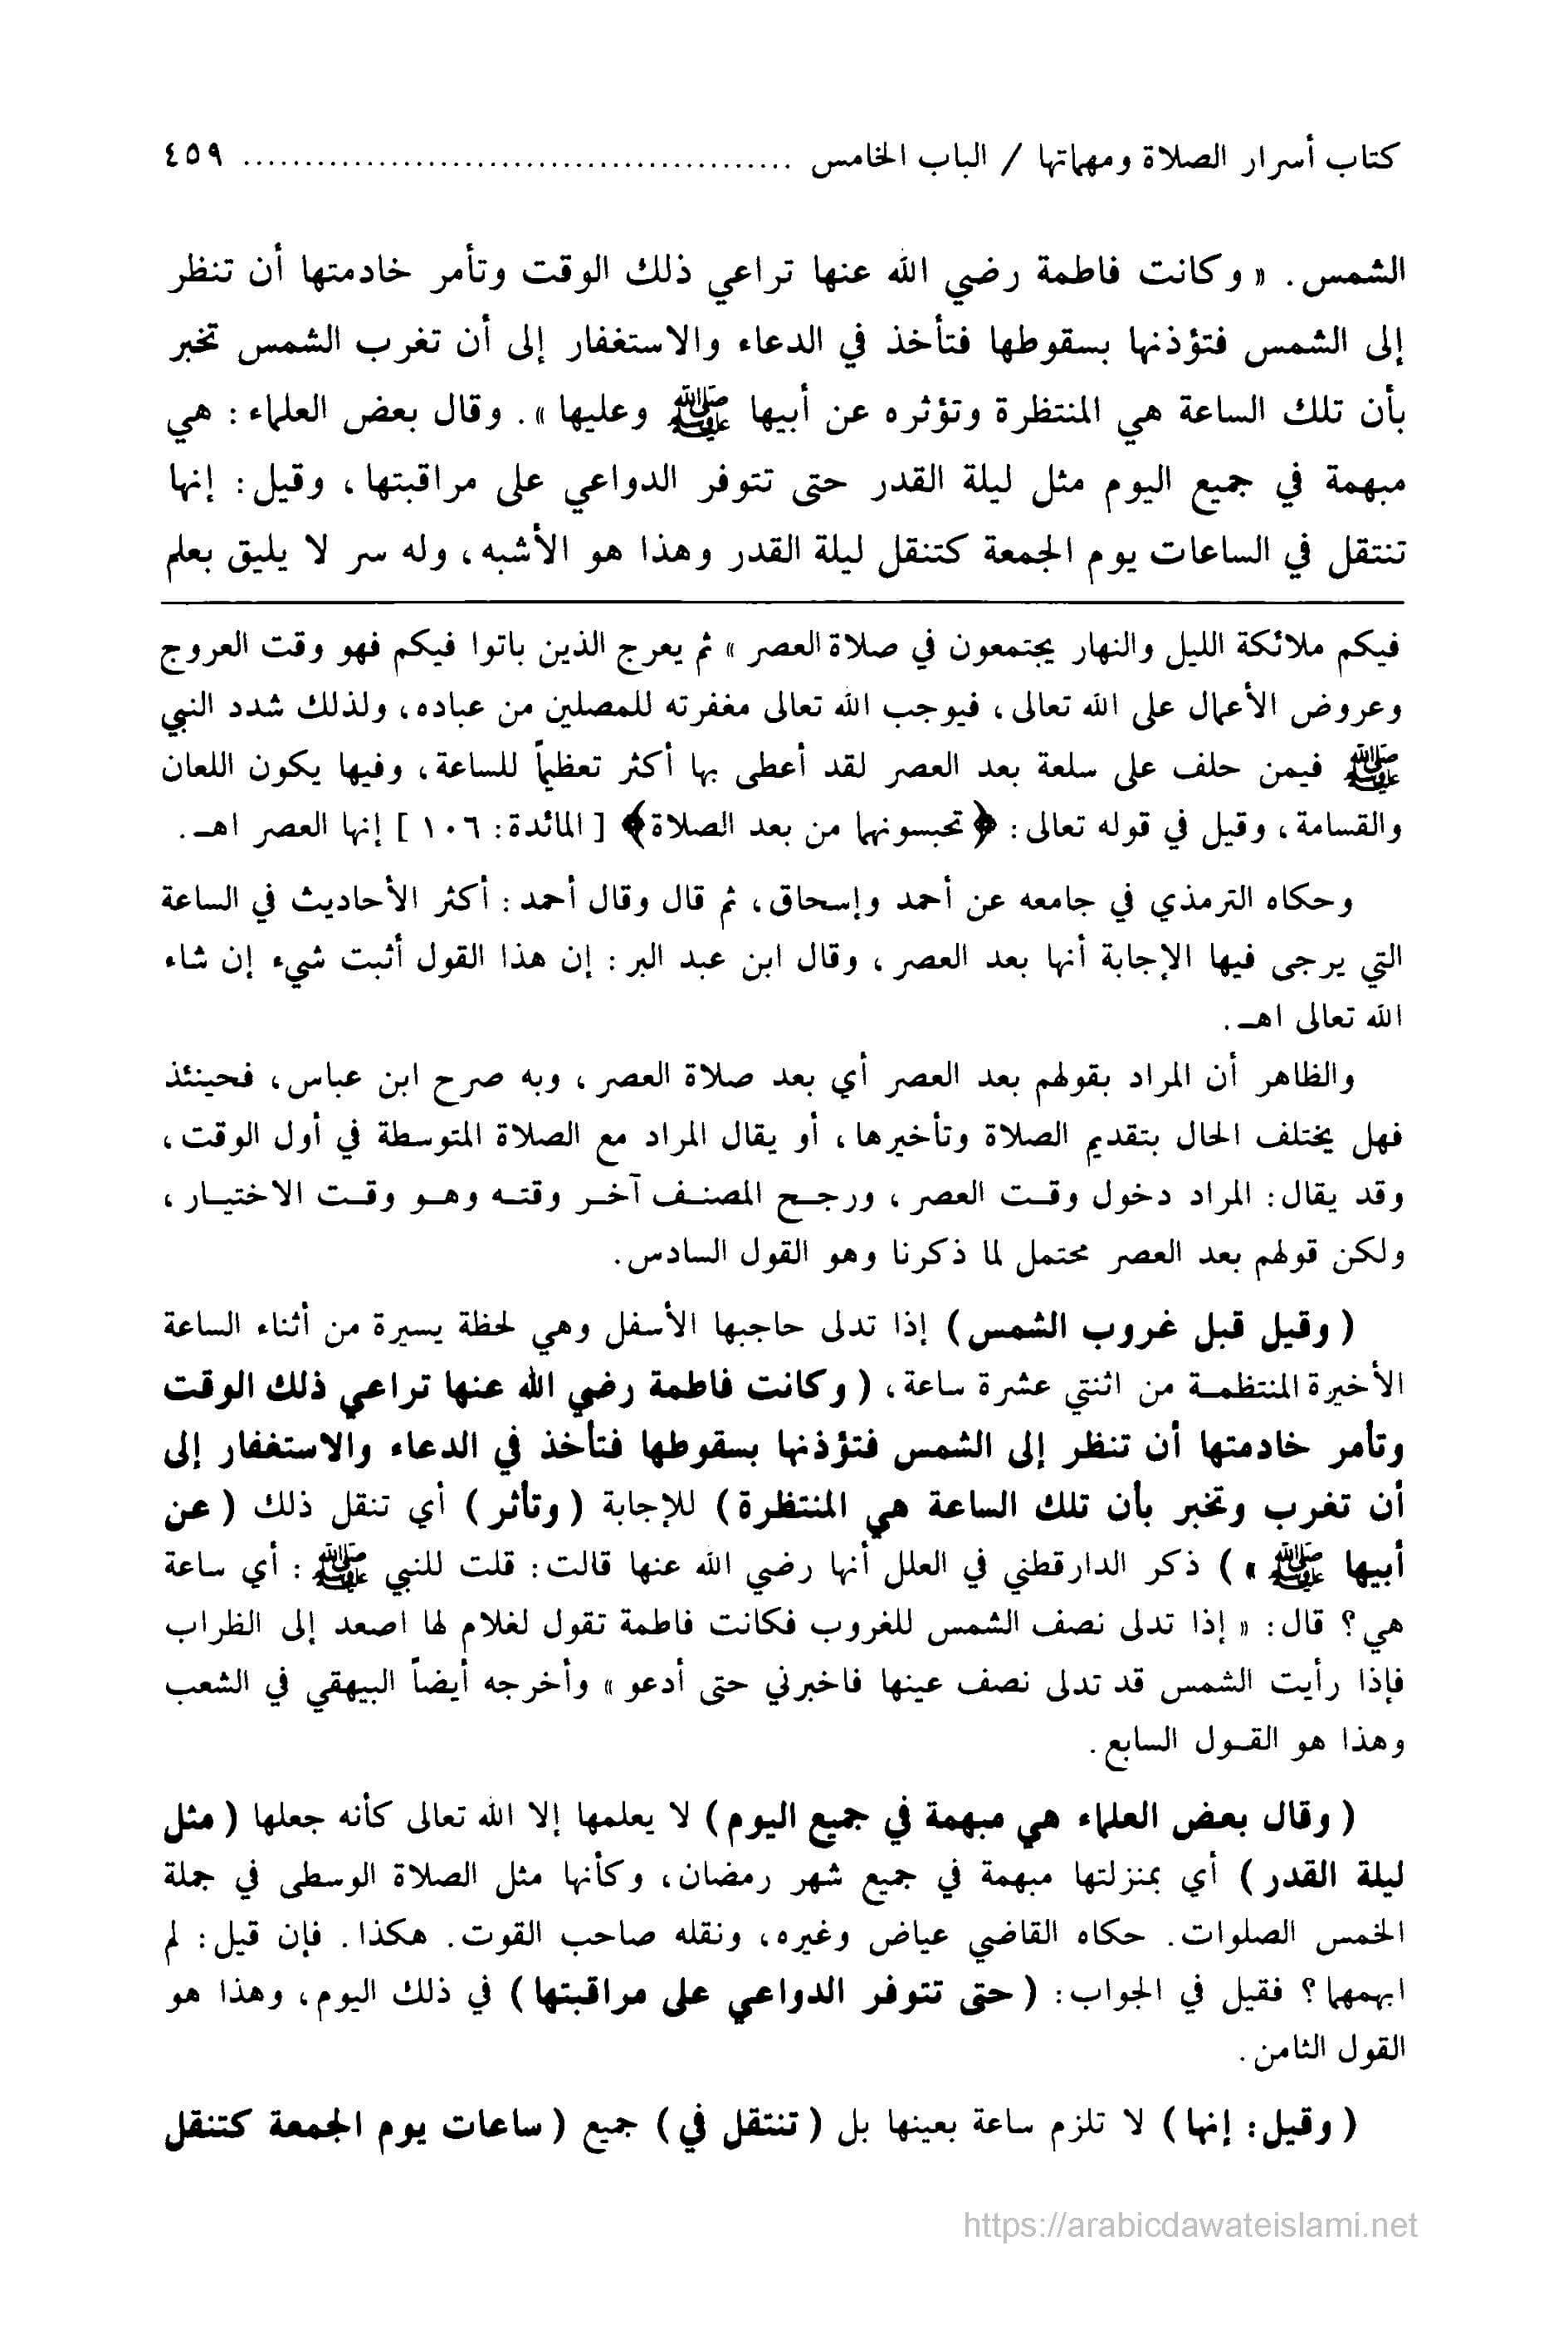 كتاب أسرار الصلاة ومهماتها / الباب الخامس ............................................. ٤٥٩
الشمس. « وكانت فاطمة رضي الله عنها تراعي ذلك الوقت وتأمر خادمتها أن تنظر
إلى الشمس فتؤذنها بسقوطها فتأخذ في الدعاء والاستغفار إلى أن تغرب الشمس تخبر
بأن تلك الساعة هي المنتظرة وتؤثره عن أبيها ﷺ وعليها ». وقال بعض العلماء: هي
مبهمة في جميع اليوم مثل ليلة القدر حتى تتوفر الدواعي على مراقبتها، وقيل: إنها
تنتقل في الساعات يوم الجمعة كتنقل ليلة القدر وهذا هو الأشبه، وله سر لا يليق بعلم
فيكم ملائكة الليل والنهار يجتمعون في صلاة العصر » ثم يعرج الذين باتوا فيكم فهو وقت العروج
وعروض الأعمال على الله تعالى، فيوجب الله تعالى مغفرته للمصلين من عباده، ولذلك شدد النبي
ﷺ فيمن حلف على سلعة بعد العصر لقد أعطى بها أكثر تعظيماً للساعة، وفيها يكون اللعان
والقسامة، وقيل في قوله تعالى: ﴿تحبسونهما من بعد الصلاة﴾ [ المائدة: ١٠٦ ] إنها العصر اهـ.
وحكاه الترمذي في جامعه عن أحمد وإسحاق، ثم قال وقال أحمد: أكثر الأحاديث في الساعة
التي يرجى فيها الإجابة أنها بعد العصر، وقال ابن عبد البر: إن هذا القول أثبت شيء إن شاء
الله تعالى اهـ.
والظاهر أن المراد بقولهم بعد العصر أي بعد صلاة العصر، وبه صرح ابن عباس، فحينئذ
فهل يختلف الحال بتقديم الصلاة وتأخيرها، أو يقال المراد مع الصلاة المتوسطة في أول الوقت،
وقد يقال: المراد دخول وقت العصر، ورجح المصنف آخر وقته وهو وقت الاختيار،
ولكن قولهم بعد العصر محتمل لما ذكرنا وهو القول السادس.
( وقيل قبل غروب الشمس) إذا تدلى حاجبها الأسفل وهي لحظة يسيرة من أثناء الساعة
الأخيرة المنتظمة من اثنتي عشرة ساعة، ( وكانت فاطمة رضي الله عنها تراعي ذلك الوقت
وتأمر خادمتها أن تنظر إلى الشمس فتؤذنها بسقوطها فتأخذ في الدعاء والاستغفار إلى
أن تغرب وتخبر بأن تلك الساعة هي المنتظرة) للإجابة (وتأثر) أي تنقل ذلك (عن
أبيها ﷺ ») ذكر الدارقطني في العلل أنها رضي الله عنها قالت: قلت للنبي ﷺ: أي ساعة
هي؟ قال: « إذا تدلى نصف الشمس للغروب فكانت فاطمة تقول لغلام لها اصعد إلى الظراب
فإذا رأيت الشمس قد تدلى نصف عينها فاخبرني حتى أدعو » وأخرجه أيضاً البيهقي في الشعب
وهذا هو القول السابع.
( وقال بعض العلماء هي مبهمة في جميع اليوم) لا يعلمها إلا الله تعالى كأنه جعلها (مثل
ليلة القدر) أي بمنزلتها مبهمة في جميع شهر رمضان، وكأنها مثل الصلاة الوسطى في جملة
الخمس الصلوات. حكاه القاضي عياض وغيره، ونقله صاحب القوت. هكذا. فإن قيل: لم
ابهمها؟ فقيل في الجواب: (حتى تتوفر الدواعي على مراقبتها) في ذلك اليوم، وهذا هو
القول الثامن.
( وقيل: إنها) لا تلزم ساعة بعينها بل (تنتقل في) جميع (ساعات يوم الجمعة كتنقل
https://arabicdawateislami.net